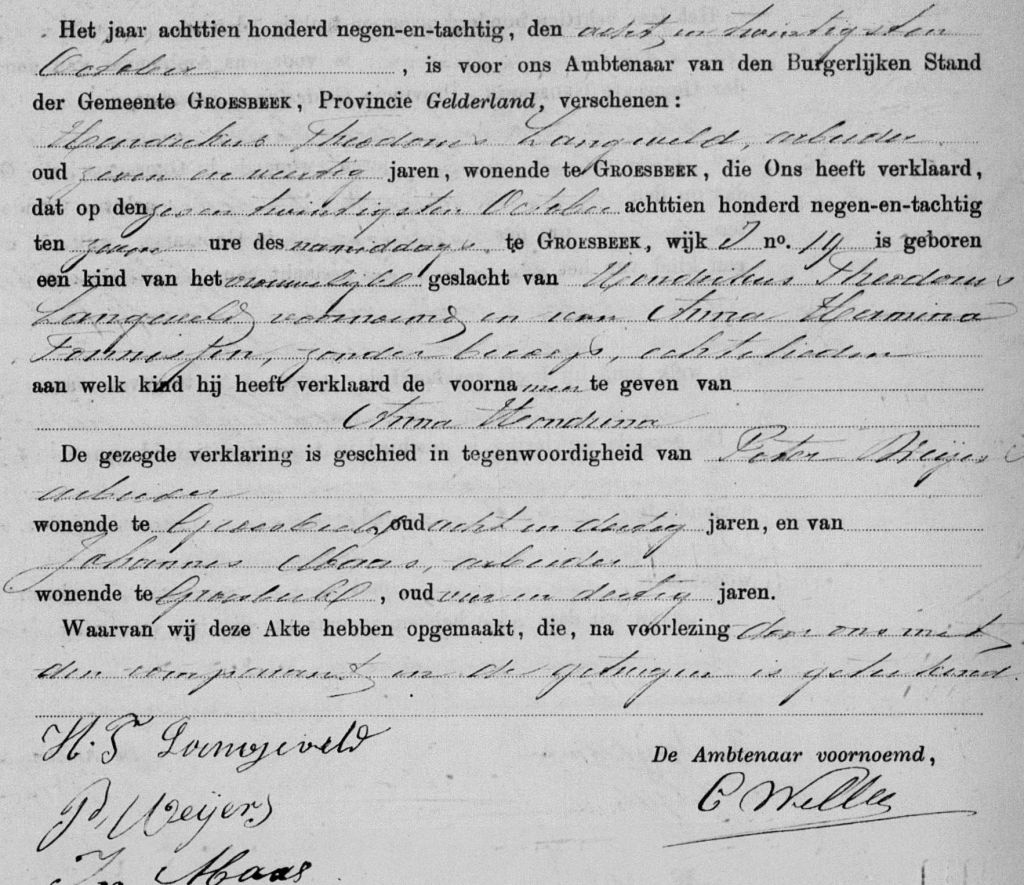 Het jaar achttien honderd negen-en-tachtig, den acht en twintigsten
October, is voor ons Ambtenaar van den Burgerlijken Stand
der Gemeente GROESBEEK, Provincie Gelderland, verschenen:
Hendrikus Theodorus Langeveld, arbeider
oud zeven en veertig jaren, wonende te GROESBEEK, die Ons heeft verklaard,
dat op den zeven twintigsten October achttien honderd negen-en-tachtig
ten zeven ure des namiddags te GROESBEEK, wijk J no. 19 is geboren
een kind van het vrouwelijk geslacht van Hendrikus Theodorus
Langeveld voornoemd en van Anna Hermina
Tonnissen, zonder beroep, echtelieden
aan welk kind hij heeft verklaard de voornamen te geven van
Anna Hendrina
De gezegde verklaring is geschied in tegenwoordigheid van Peter
arbeider
wonende te Groesbeek, oud acht en dertig jaren, en van
Johannes Maas, arbeider
wonende te Groesbeek, oud vier en dertig jaren.
Waarvan wij deze Akte hebben opgemaakt, die, na voorlezing door ons met
den comparant en de getuigen is geteekend.
H. T Langeveld
De Ambtenaar voornoemd,
P, Weijers
Maas